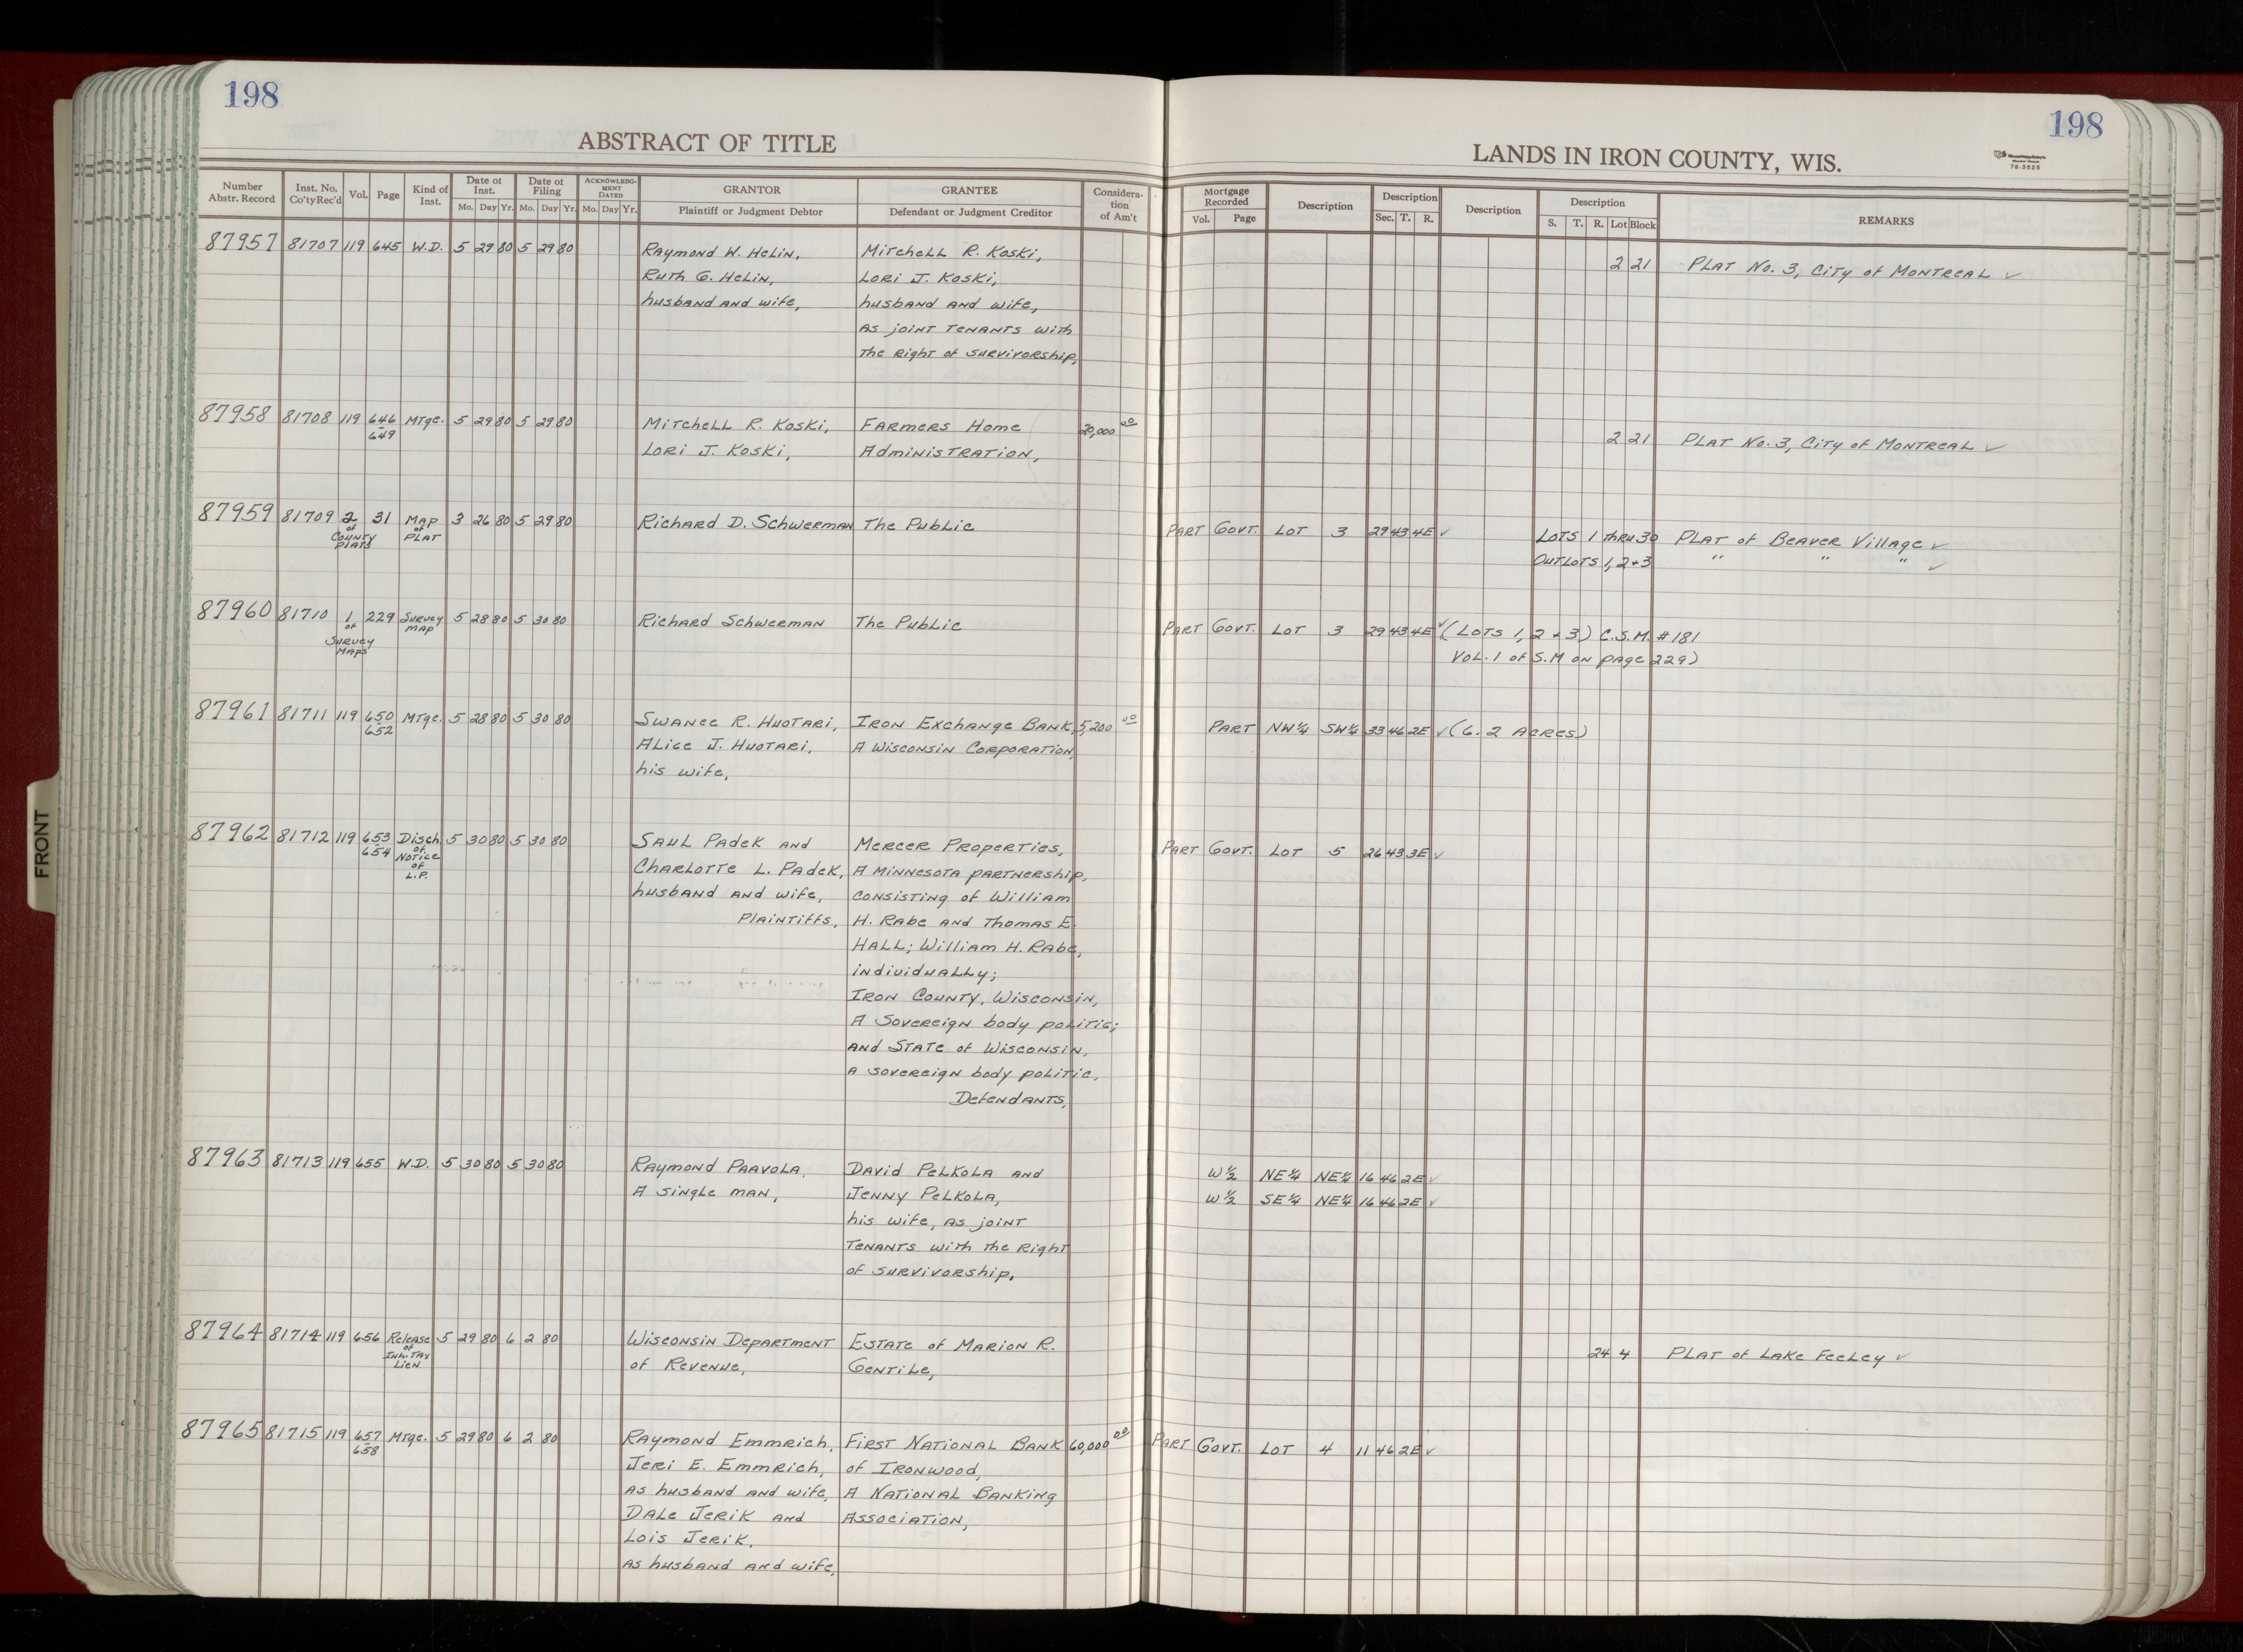 198
ABSTRACT OF TITLE
Number Abstr. Record Inst. No. Co'ty Rec'd Vol. Page Kind of Inst. Date of Inst. Mo. Day Yr. Date of Filing Mo. Day Yr. ACKNOWLEDGMENT DATED Mo. Day Yr. GRANTOR Plaintiff or Judgment Debtor GRANTEE Defendant or Judgment Creditor Consideration of Am't
198
LANDS IN IRON COUNTY, WIS.
78-3525
Mortgage Recorded Vol. Page Description Description Sec. T. R. Description Description S. T. R. Lot Block REMARKS
FRONT
87957 81707 119 645 W.D. 5 29 80 5 29 80 Raymond W. Helin, Mitchell R. Koski, 2 21 Plat No. 3, City of Montreal ✓
Ruth G. Helin, Lori J. Koski,
husband and wife, husband and wife,
as joint tenants with
the right of survivorship,
87958 81708 119 646 Mtge. 5 29 80 5 29 80 Mitchell R. Koski, Farmers Home 20,000 00 2 21 Plat No. 3, City of Montreal ✓
649 Lori J. Koski, Administration,
87959 81709 2 31 Map 3 26 80 5 29 80 Richard D. Schwerman The Public Part Govt. Lot 3 29 43 4E ✓ Lots 1 thru 30 Plat of Beaver Village ✓
of of Outlots 1, 2 + 3 " " " ✓
County Plat
Plats
87960 81710 1 229 Survey 5 28 80 5 30 80 Richard Schwerman The Public Part Govt. Lot 3 29 43 4E ✓ (Lots 1, 2 + 3) C.S.M. #181
of Map Vol. 1 of S.M on page 229)
Survey
Maps
87961 81711 119 650 Mtge. 5 28 80 5 30 80 Swanee R. Huotari, Iron Exchange Bank, 5,200 00 Part NW¼ SW¼ 33 46 2E ✓ (6.2 Acres)
652 Alice J. Huotari, A Wisconsin Corporation,
his wife,
87962 81712 119 653 Disch 5 30 80 5 30 80 Saul Padek and Mercer Properties, Part Govt. Lot 5 26 43 3E ✓
654 of Charlotte L. Padek, A Minnesota partnership,
Notice husband and wife, consisting of William
of Plaintiffs, H. Rabe and Thomas E.
L.P. Hall; William H. Rabe,
individually;
Iron County, Wisconsin,
A Sovereign body politic;
and State of Wisconsin,
A sovereign body politic,
Defendants,
87963 81713 119 655 W.D. 5 30 80 5 30 80 Raymond Paavola, David Pelkola and W½ NE¼ NE¼ 16 46 2E ✓
A single man, Jenny Pelkola, W½ SE¼ NE¼ 16 46 2E ✓
his wife, as joint
tenants with the right
of survivorship,
87964 81714 119 656 Release 5 29 80 6 2 80 Wisconsin Department Estate of Marion R. 24 4 Plat of Lake Feeley ✓
of of Revenue, Gentile,
Inh. Tax
Lien
87965 81715 119 657 Mtge. 5 29 80 6 2 80 Raymond Emmrich, First National Bank 60,000 00 Part Govt. Lot 4 11 46 2E ✓
658 Jeri E. Emmrich, of Ironwood,
as husband and wife, A National Banking
Dale Jerik and Association,
Lois Jerik,
as husband and wife,